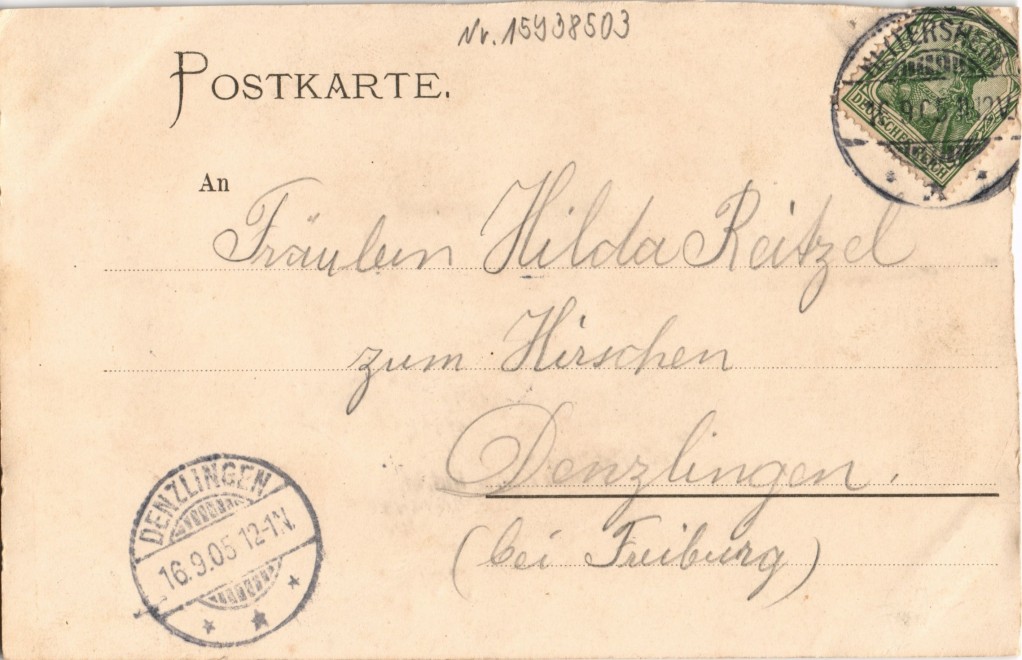 Nr. 15938503
POSTKARTE.
DEUTSCHES REICH
16.9.05 11-12V.
An
Fräulein Hilda Reitzel
zum Hirschen
Denzlingen.
(bei Freiburg)
DENZLINGEN
16.9.05 12-1N.